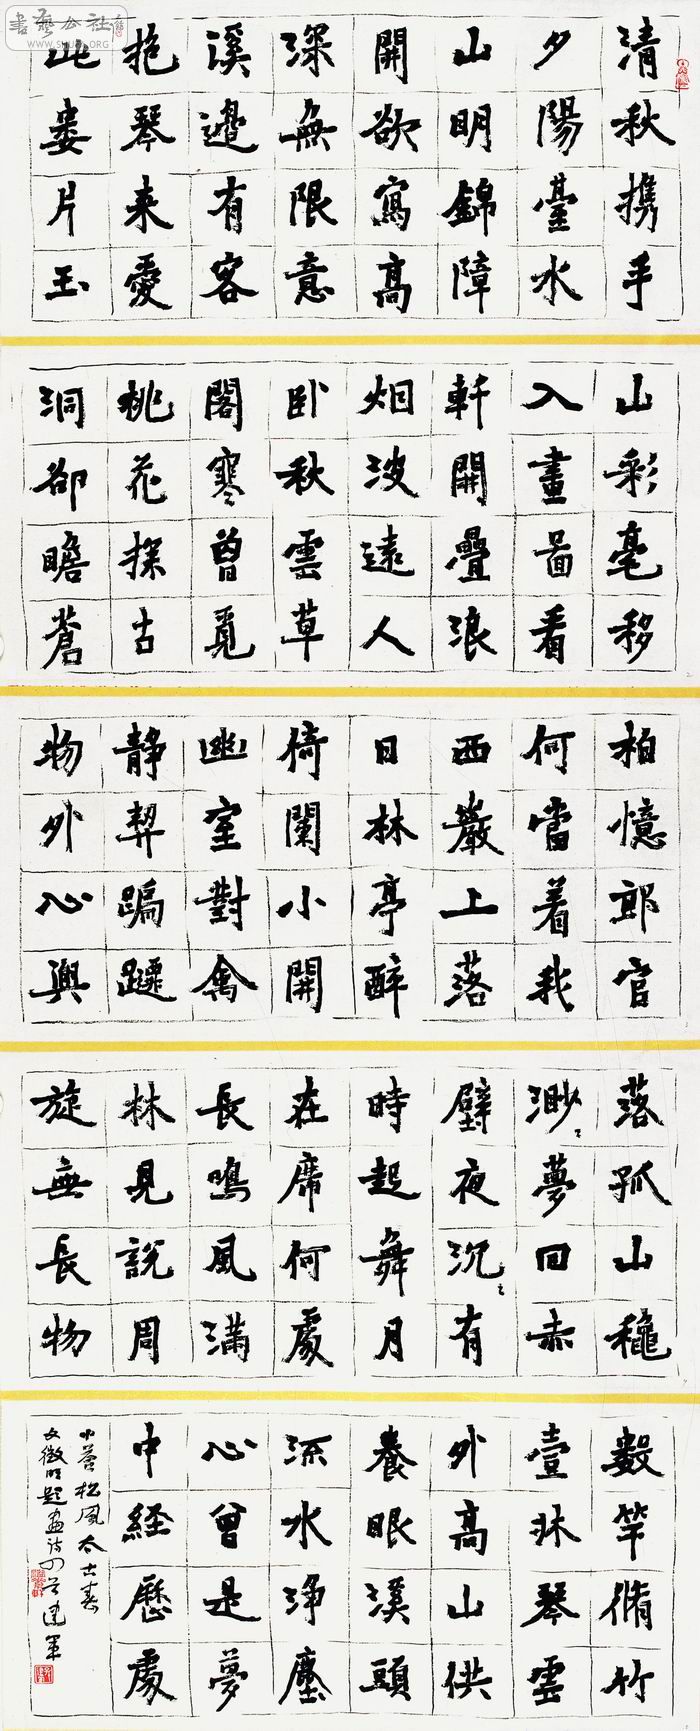 書藝公社
WWW.SHUFA.ORG
清秋携手
夕陽臺水
山明錦障
開欲寫高
深無限意
溪邊有客
抱琴来愛
此婁片玉
山彩毫移
入畫啚看
軒開疊浪
烟波遠人
卧秋雲草
閣寒曾覓
桃花探古
洞卻瞻蒼
柏憶郎官
何當着我
西巖上落
日林亭醉
倚闌小開
幽室對禽
静契蹁躚
物外心與
落孤山穐
渺〻夢回赤
壁夜沉〻有
時起舞月
在席何處
長鳴風满
林見說周
旋無長物
數竿脩竹
壹牀琴雲
外高山供
養眼溪頭
流水浄塵
心曾是夢
中経歷處
松風太古春
文徵明題畫诗四首建軍